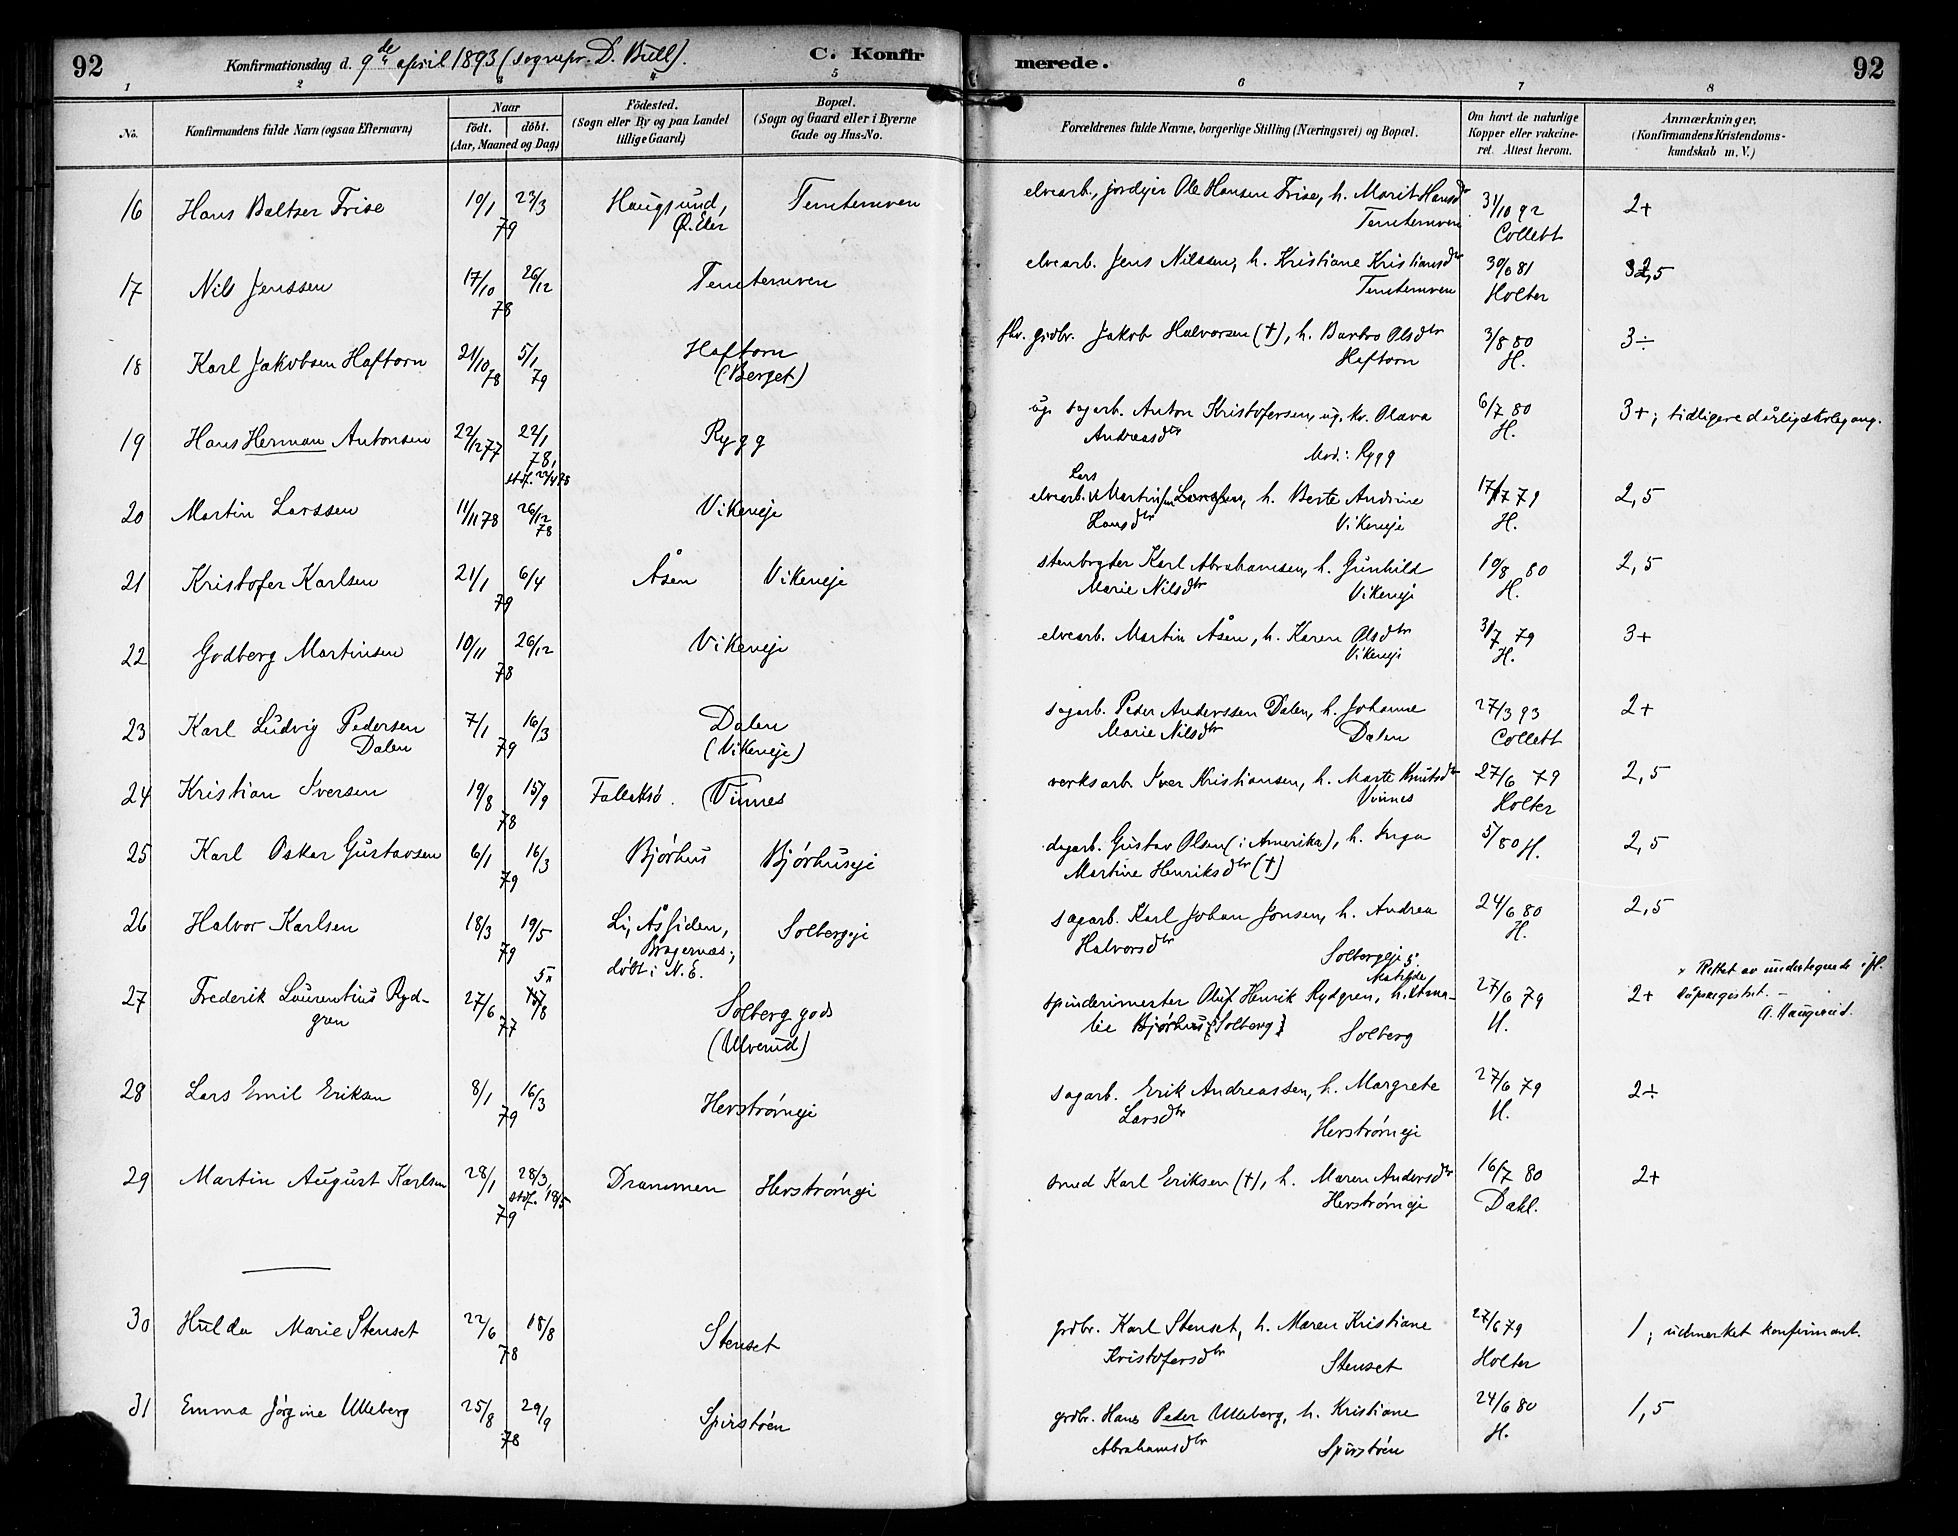 92
Konfirmationsdag d. 9de april 1893 (sognepr. D. Bull).
C. Konfir
merede.
92
1 2 3 4 5 6 7 8
No.
Konfirmandens fulde Navn (ogsaa Efternavn)
Naar
födt. döbt.
(Aar, Maaned og Dag)
Födested.
(Sogn eller By og paa Landet
tillige Gaard)
Bopæl.
(Sogn og Gaard eller i Byerne
Gade og Hus-No.
Forældrenes fulde Navne, borgerlige Stilling (Næringsvei) og Bopæl.
Om havt de naturlige
Kopper eller vakcine-
ret. Attest herom.
Anmærkninger.
(Konfirmandens Kristendoms-
kundskab m. V.)
16 Hans Baltzer Frise 19/1 23/3 Haugsund, Temtemven elvearb., jordejer Ole Hansen Frise, h. Marit Hansdtr 31/10 92 2+
79 Ø. Eker Temtemven Collett
17 Nils Jenssen 17/10 26/12 Temtemven elvearb. Jens Nilssen, h. Kristiane Kristiansdtr 30/6 81 2,5
78 Temtemven Holter
18 Karl Jakobsen Haftorn 21/10 78 5/1 79 Haftorn fhv. grdbr. Jakob Halvorsen (†), h. Barbro Olsdtr 3/8 80 3÷
(Berget) Haftorn H.
19 Hans Herman Antonsen 22/12 77 22/1 78, Rygg ug. sagarb. Anton Kristofersen, ug. kv. Olava 6/7 80 3+; tidligere dårlig skolegang.
stdf. 22/4 78 Andreasdtr Mod.: Rygg H.
20 Martin Larssen 11/11 78 26/12 78 Vikeneje elvearb. Lars Martinsen, h. Berte Andrine 17/7 79 2,5
Hansdtr Vikeneje H.
21 Kristofer Karlsen 21/1 6/4 Åsen Vikeneje stenbryter Karl Abrahamsen, h. Gunhild 19/8 80 2,5
79 Marie Nilsdtr Vikeneje H.
22 Godberg Martinsen 10/11 26/12 Vikeneje elvearb. Martin Åsen, h. Karen Olsdtr 31/7 79 3+
78 Vikeneje H.
23 Karl Ludvig Pedersen 7/1 16/3 Dalen sagarb. Peder Anderssen Dalen, h. Johanne 27/3 93 2+
Dalen 79 (Vikeneje) Marie Nilsdtr Dalen Collett
24 Kristian Iversen 19/8 15/9 Falleksö. (Vinnes verksarb. Iver Kristiansen, h. Marte Knutsdtr 27/6 79 2,5
78 Vinnes Holter
25 Karl Oskar Gustavsen 6/1 16/3 Bjórhus Bjórhuseje dagarb. Gustav Olsen (i Amerika), h. Inga 5/80 H. 2,5
79 Martine Henriksdtr (†)
26 Halvor Karlsen 18/3 19/5 Li, Åssiden, Solbergeje sagarb. Karl Johan Jonsen, h. Andrea 24/6 80 2,5
79 Bragernæs; Halvorsdtr Solbergeje H.
döbt i N. E.
27 Frederik Laurentius Ryd- 27/6 5/8 Solberg gods spinderimester Oluf Henrik Rydgren, h. Matilde Ama- 27/6 79 2+ x Rettet av undertegnede if.
gren 77 (Ulverud) lie Bjórhus (Solberg) Solberg H. dåpsregistret. –
A. Haugerud.
28 Lars Emil Eriksen 8/1 16/3 Herstrómeje sagarb. Erik Andreassen, h. Margrete 27/6 79 2÷
79 Larsdtr Herstrómeje H.
29 Martin August Karlsen 28/1 28/3, Drammen Herstrómeje smed Karl Eriksen (†), h. Maren Andersdtr 16/7 80 2+
79 stdf. 18/5 Herstrómeje Dahl.
30 Hulda Marie Stenset 22/6 18/8 Stenset grdbr. Karl Stenset, h. Maren Kristiane 27/6 79 1; udmerket konfirmant.
78 Kristofersdtr Stenset Holter
31 Emma Jörgine Ulleberg 25/8 29/9 Spirstöen grdbr. Hans Peder Ulleberg, h. Kristiane 24/6 80 1,5
78 Abrahamsdtr Spirstöen H.